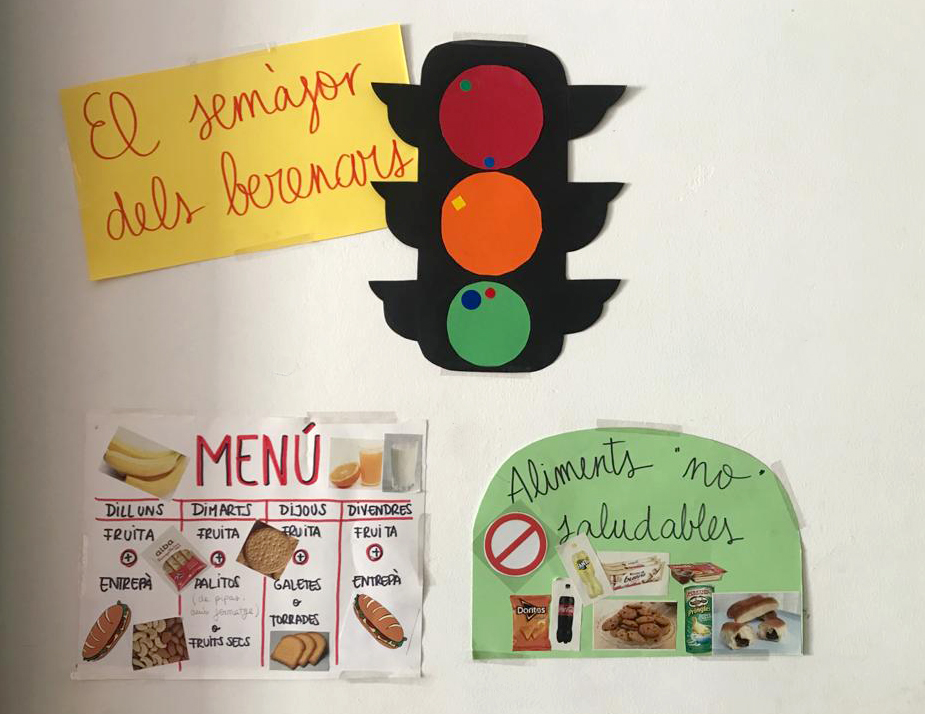 El semàfor
dels berenars
MENÚ
DILLUNS DIMARTS DIJOUS DIVENDRES
FRUITA FRUITA FRUITA FRUITA
+ + + +
ENTREPÀ PALITOS GALETES ENTREPÀ
(de pipes,
amb formatge)
o o
TORRADES
FRUITS SECS
aiba
Aliments "no"
saludables
Doritos
Coca-Cola
Pringles